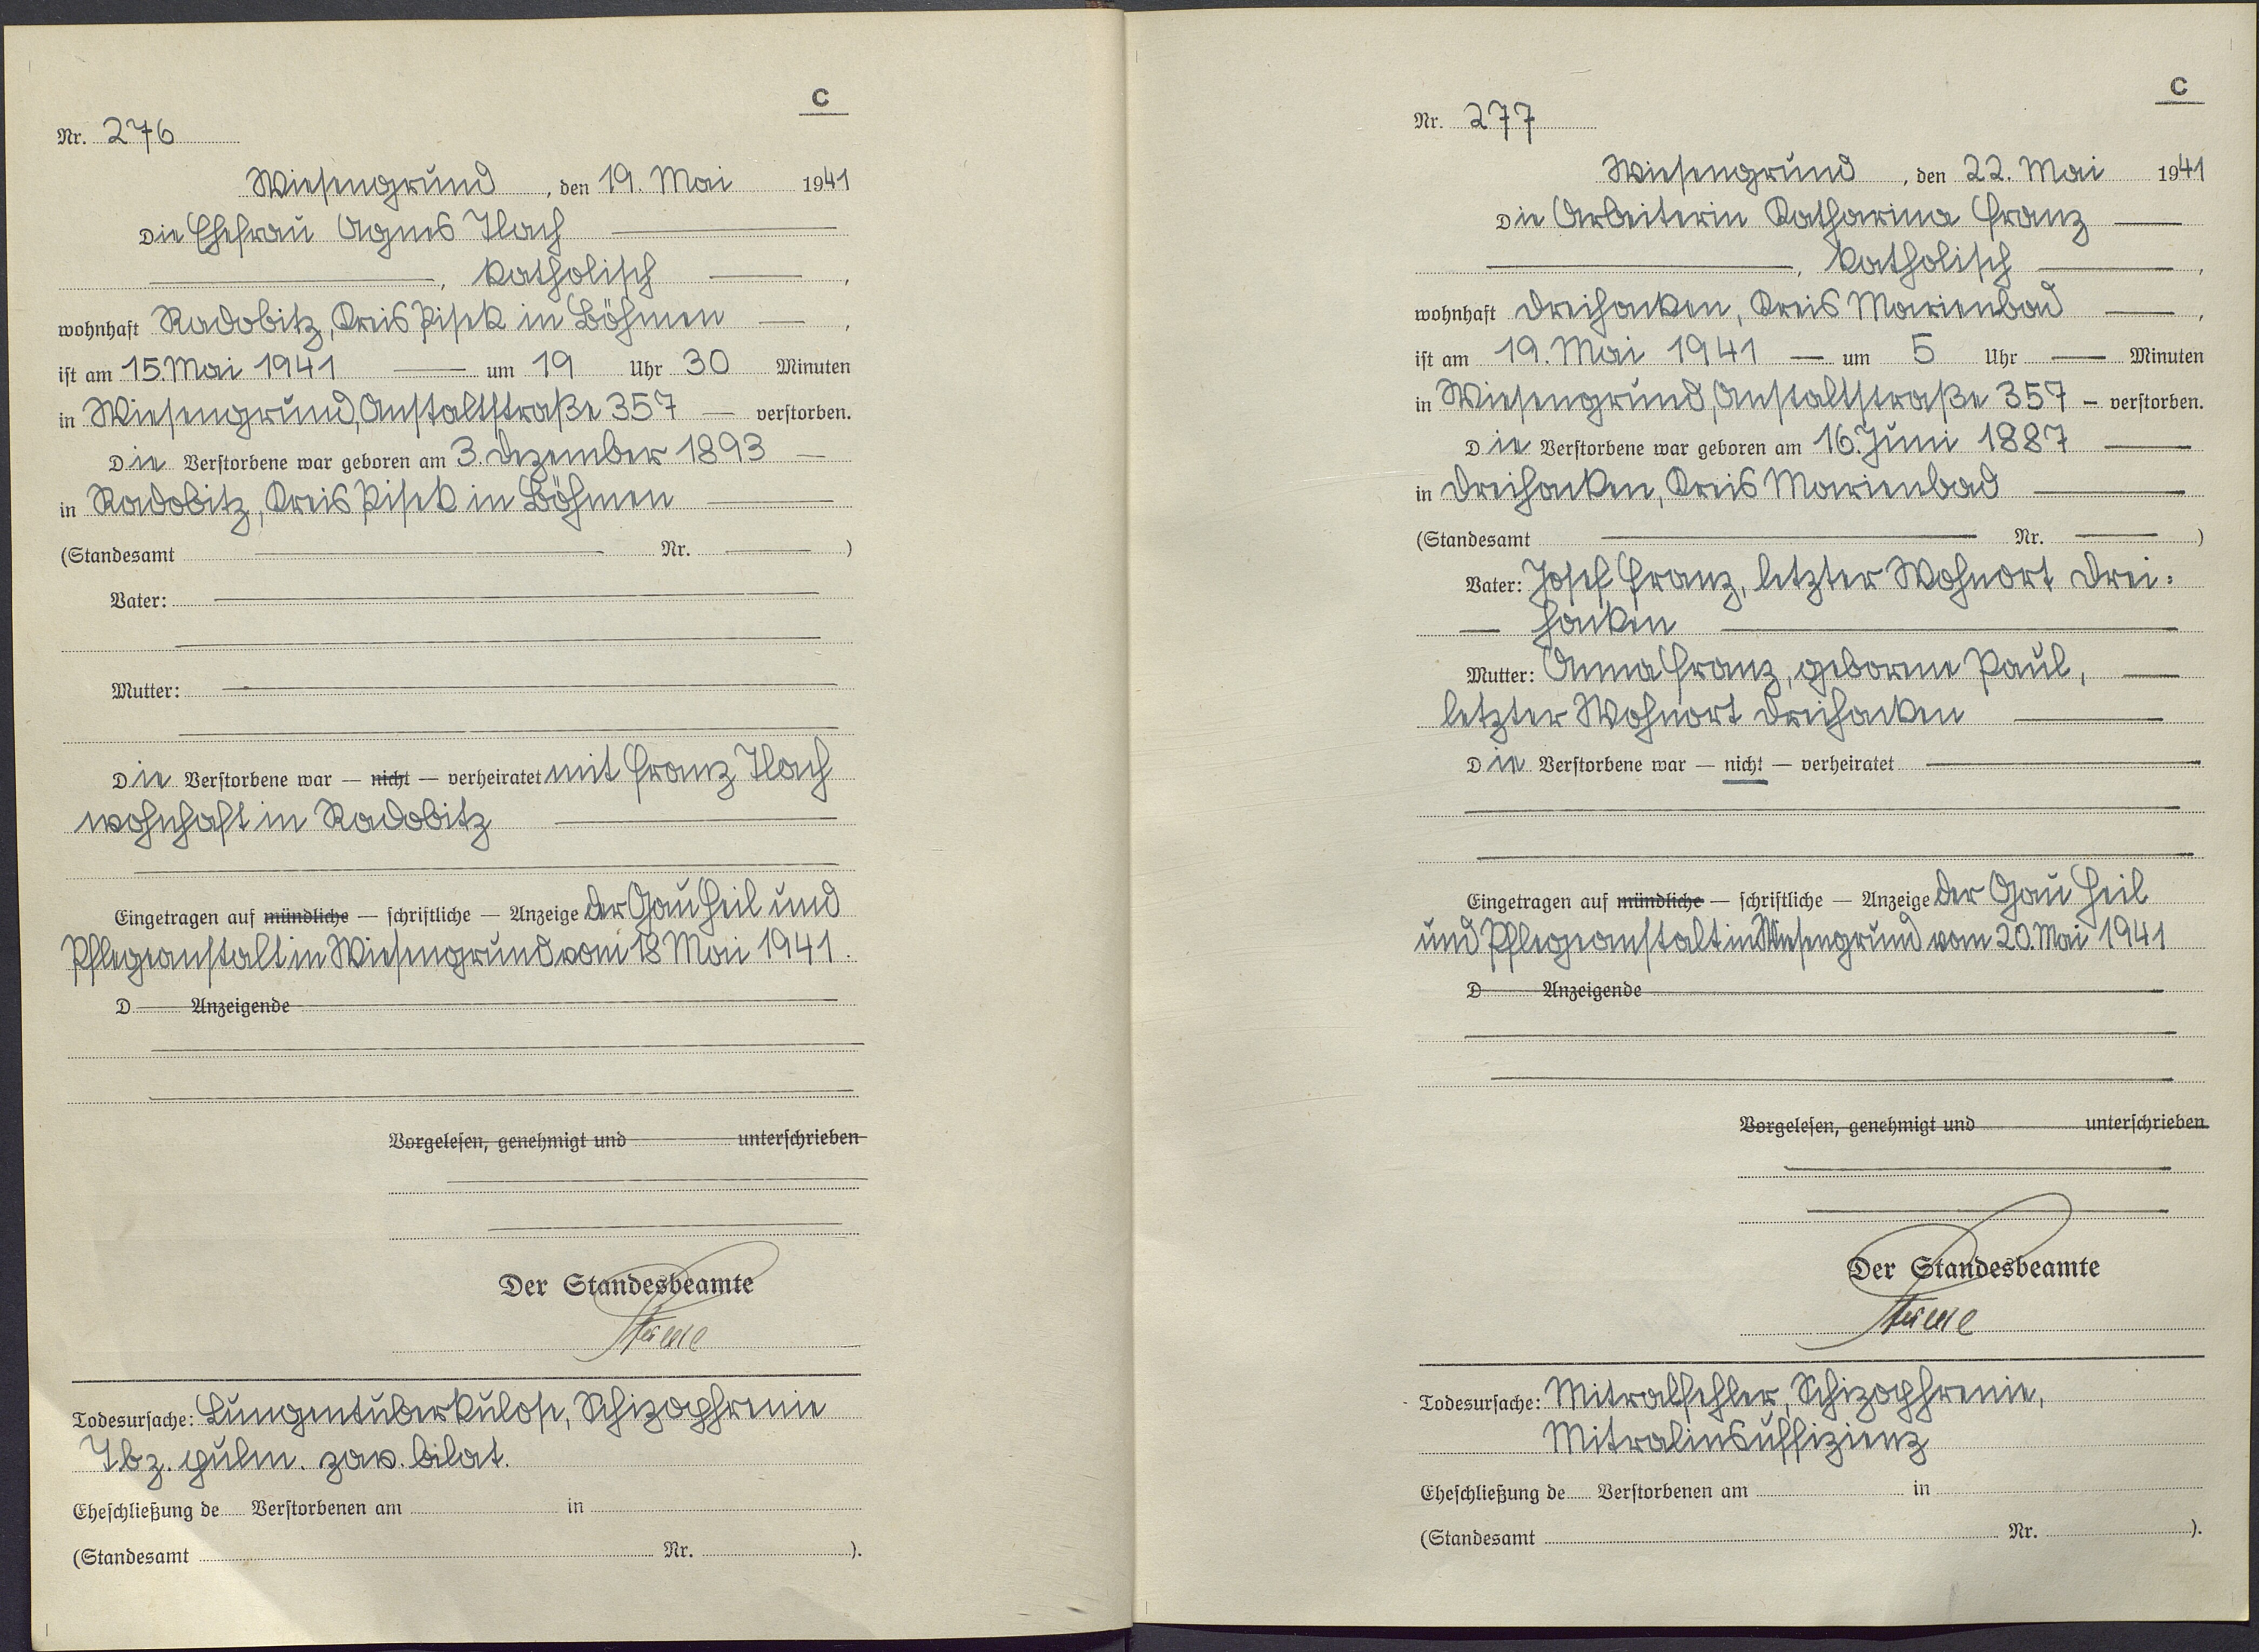 C
Nr. 276
Wiesengrund, den 19. Mai 1941
Die Ehefrau Agnes Ilach
, katholisch ,
wohnhaft Radobitz, Kreis Pisek in Böhmen ,
ist am 15. Mai 1941 um 19 Uhr 30 Minuten
in Wiesengrund, Anstaltstraße 357 verstorben.
Die Verstorbene war geboren am 3. Dezember 1893
in Radobitz, Kreis Pisek in Böhmen
(Standesamt Nr. )
Vater:
Mutter:
Die Verstorbene war — nicht — verheiratet mit Franz Ilach
wohnhaft in Radobitz
Eingetragen auf mündliche — schriftliche — Anzeige der Gau Heil und
Pflegeanstalt in Wiesengrund vom 18 Mai 1941.
D Anzeigende
Vorgelesen, genehmigt und unterschrieben
Der Standesbeamte
Todesursache: Lungentuberkulose, Schizophrenie
Tbz. pulm. zav. bilat.
Eheschließung de Verstorbenen am in
(Standesamt Nr. ).
C
Nr. 277
Wiesengrund, den 22. Mai 1941
Die Arbeiterin Katharina Franz
, katholisch ,
wohnhaft Dreihacken, Kreis Marienbad ,
ist am 19. Mai 1941 um 5 Uhr Minuten
in Wiesengrund, Anstaltstraße 357 – verstorben.
Die Verstorbene war geboren am 16. Juni 1887
in Dreihacken, Kreis Marienbad
(Standesamt Nr. )
Vater: Josef Franz, letzter Wohnort Drei-
hacken
Mutter: Anna Franz, geborene Paul,
letzter Wohnort Dreihacken
Die Verstorbene war — nicht — verheiratet
Eingetragen auf mündliche — schriftliche — Anzeige der Gau Heil
und Pflegeanstalt in Wiesengrund vom 20. Mai 1941
D Anzeigende
Vorgelesen, genehmigt und unterschrieben
Der Standesbeamte
Todesursache: Mitralfehler, Schizophrenie,
Mitralinsuffizienz
Eheschließung de Verstorbenen am in
(Standesamt Nr. ).